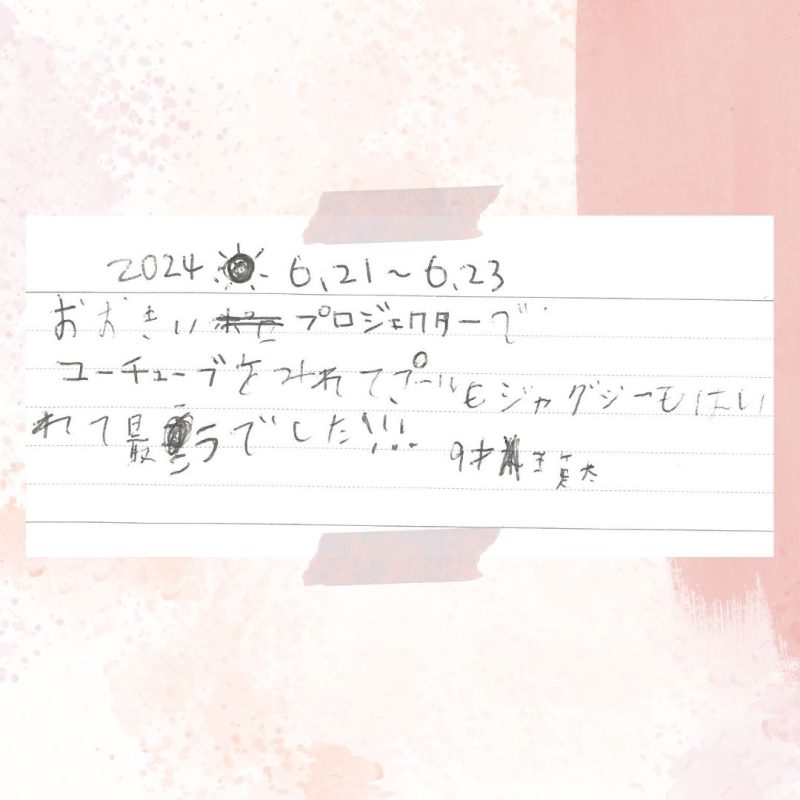 2024 6.21〜6.23
おおきい プロジェクターで
ユーチューブをみれてプールもジャグジーもはい
れて最ラでした!!!
9才